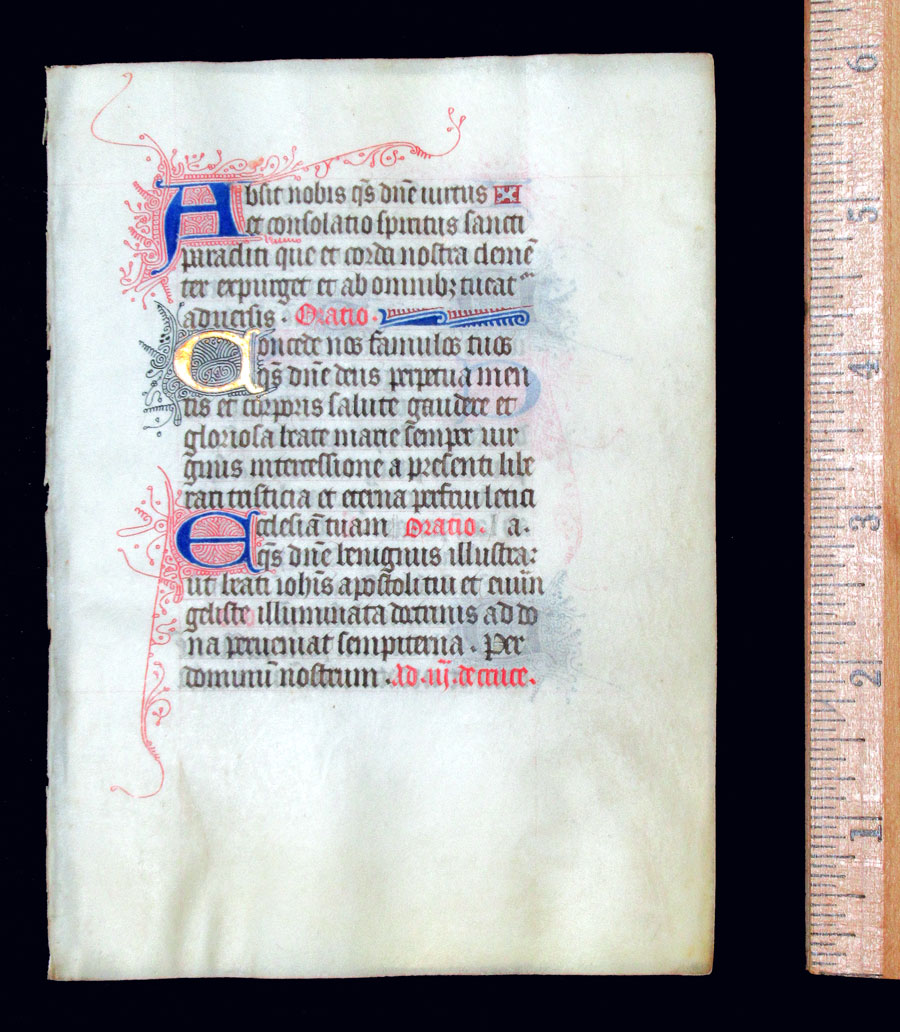 Absit nobis qs̄ dn̄e uirtus
et consolatio spiritus sancti
paracliti que et corda nostra clemen̄
ter expurget et ab omnibꝫ tueat᷑
aduersis . Oratio .
Concede nos famulos tuos
qs̄ dn̄e deus perpetua men
tis et corporis salute gaudere et
gloriosa beate marie semper uir
ginis intercessione a presenti libe
rari tristicia et eterna perfrui letici
Ecclesiā tuam Oratio . a.
qs̄ dn̄e benignus illustra:
ut beati ioh̄is apostoli tui et euān
geliste illuminata doctrinis ad do
na perueniat sempiterna . Per
dominū nostrum . Ad .iij. de cruce .
6
5
4
3
2
1